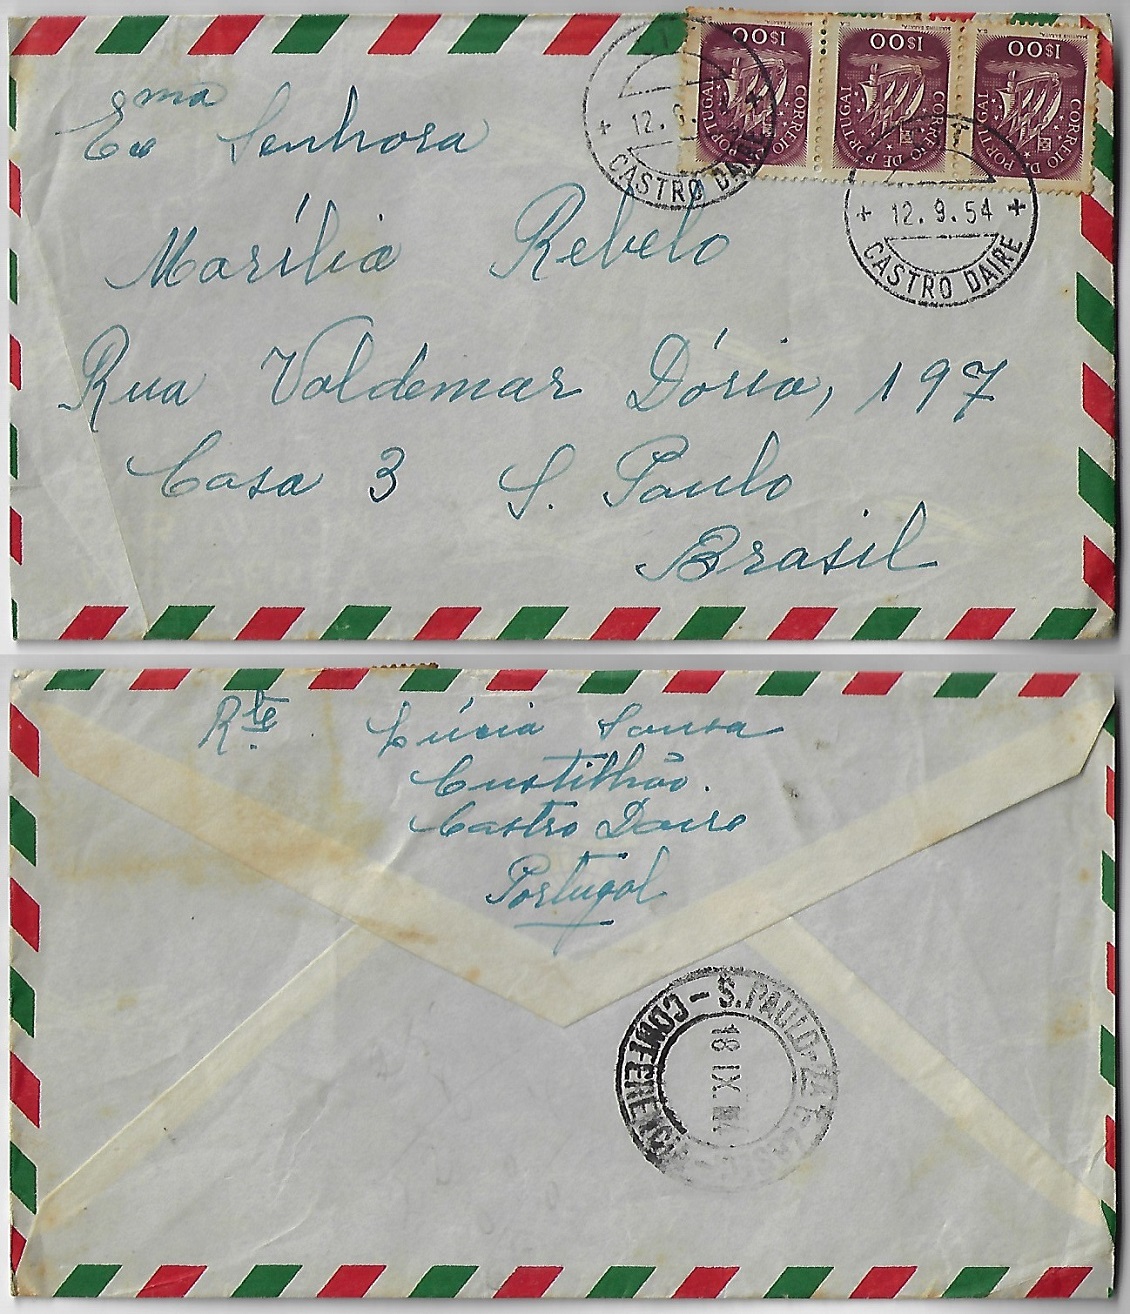 Exma Senhora
Marília Rebelo
Rua Valdemar Dória, 197
Casa 3 S. Paulo
Brasil
1$00
CORREIO DE PORTUGAL
1$00
CORREIO DE PORTUGAL
1$00
CORREIO DE PORTUGAL
12.9.
CASTRO DAIRE
12.9.54
CASTRO DAIRE
Rte. Lúcia Sousa
Custilhão.
Castro Daire
Portugal
S. PAULO
CONFERENCIA
18 IX